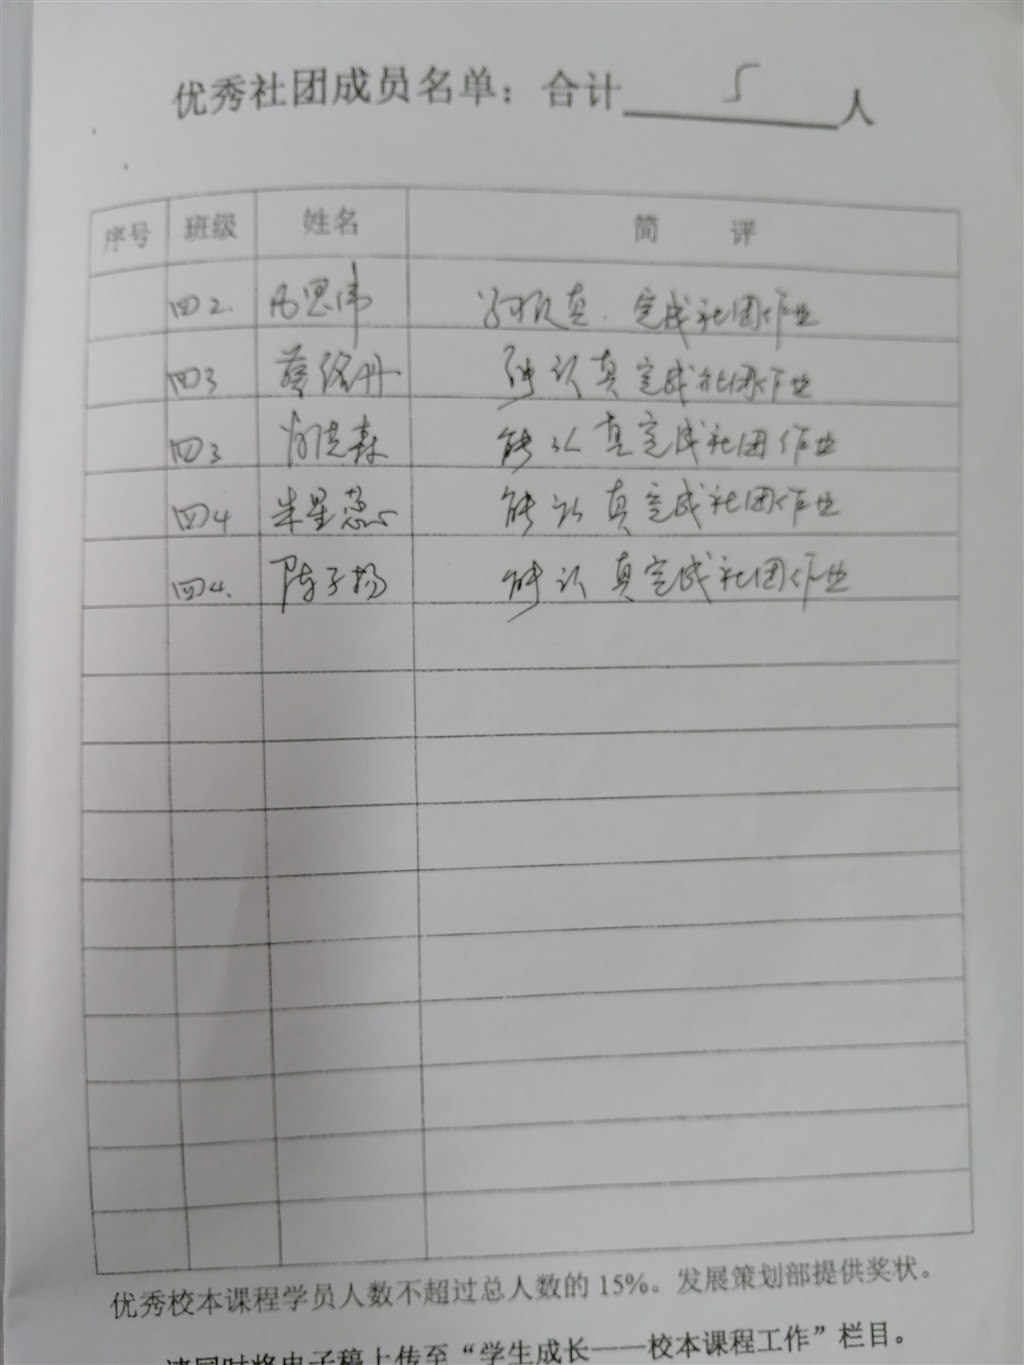 优秀社团成员名单：合计 5 人
序号 班级 姓名 简 评
四2. 思伟 真. 完成社团作业
四3 丹 能认真完成社团作业
四3 森 能认真完成社团作业
四4 朱星蕊 能认真完成社团作业
四4. 陈子扬 能认真完成社团作业
优秀校本课程学员人数不超过总人数的15%。发展策划部提供奖状。
请同时将电子稿上传至“学生成长——校本课程工作”栏目。